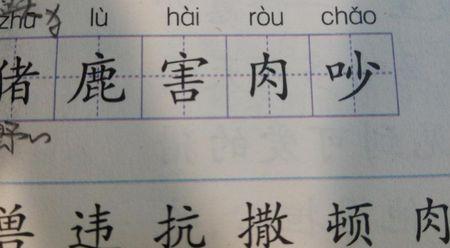 lù hài ròu chǎo
猪 鹿 害 肉 吵
野
兽 违 抗 撒 顿 肉